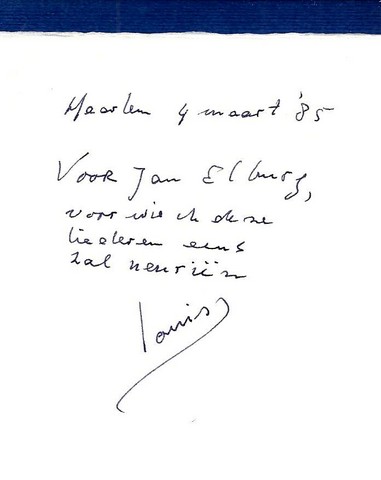 Haarlem 4 maart '85
Voor Jan Elburg,
voor wie ik deze
liederen eens
zal neuriën
Louis